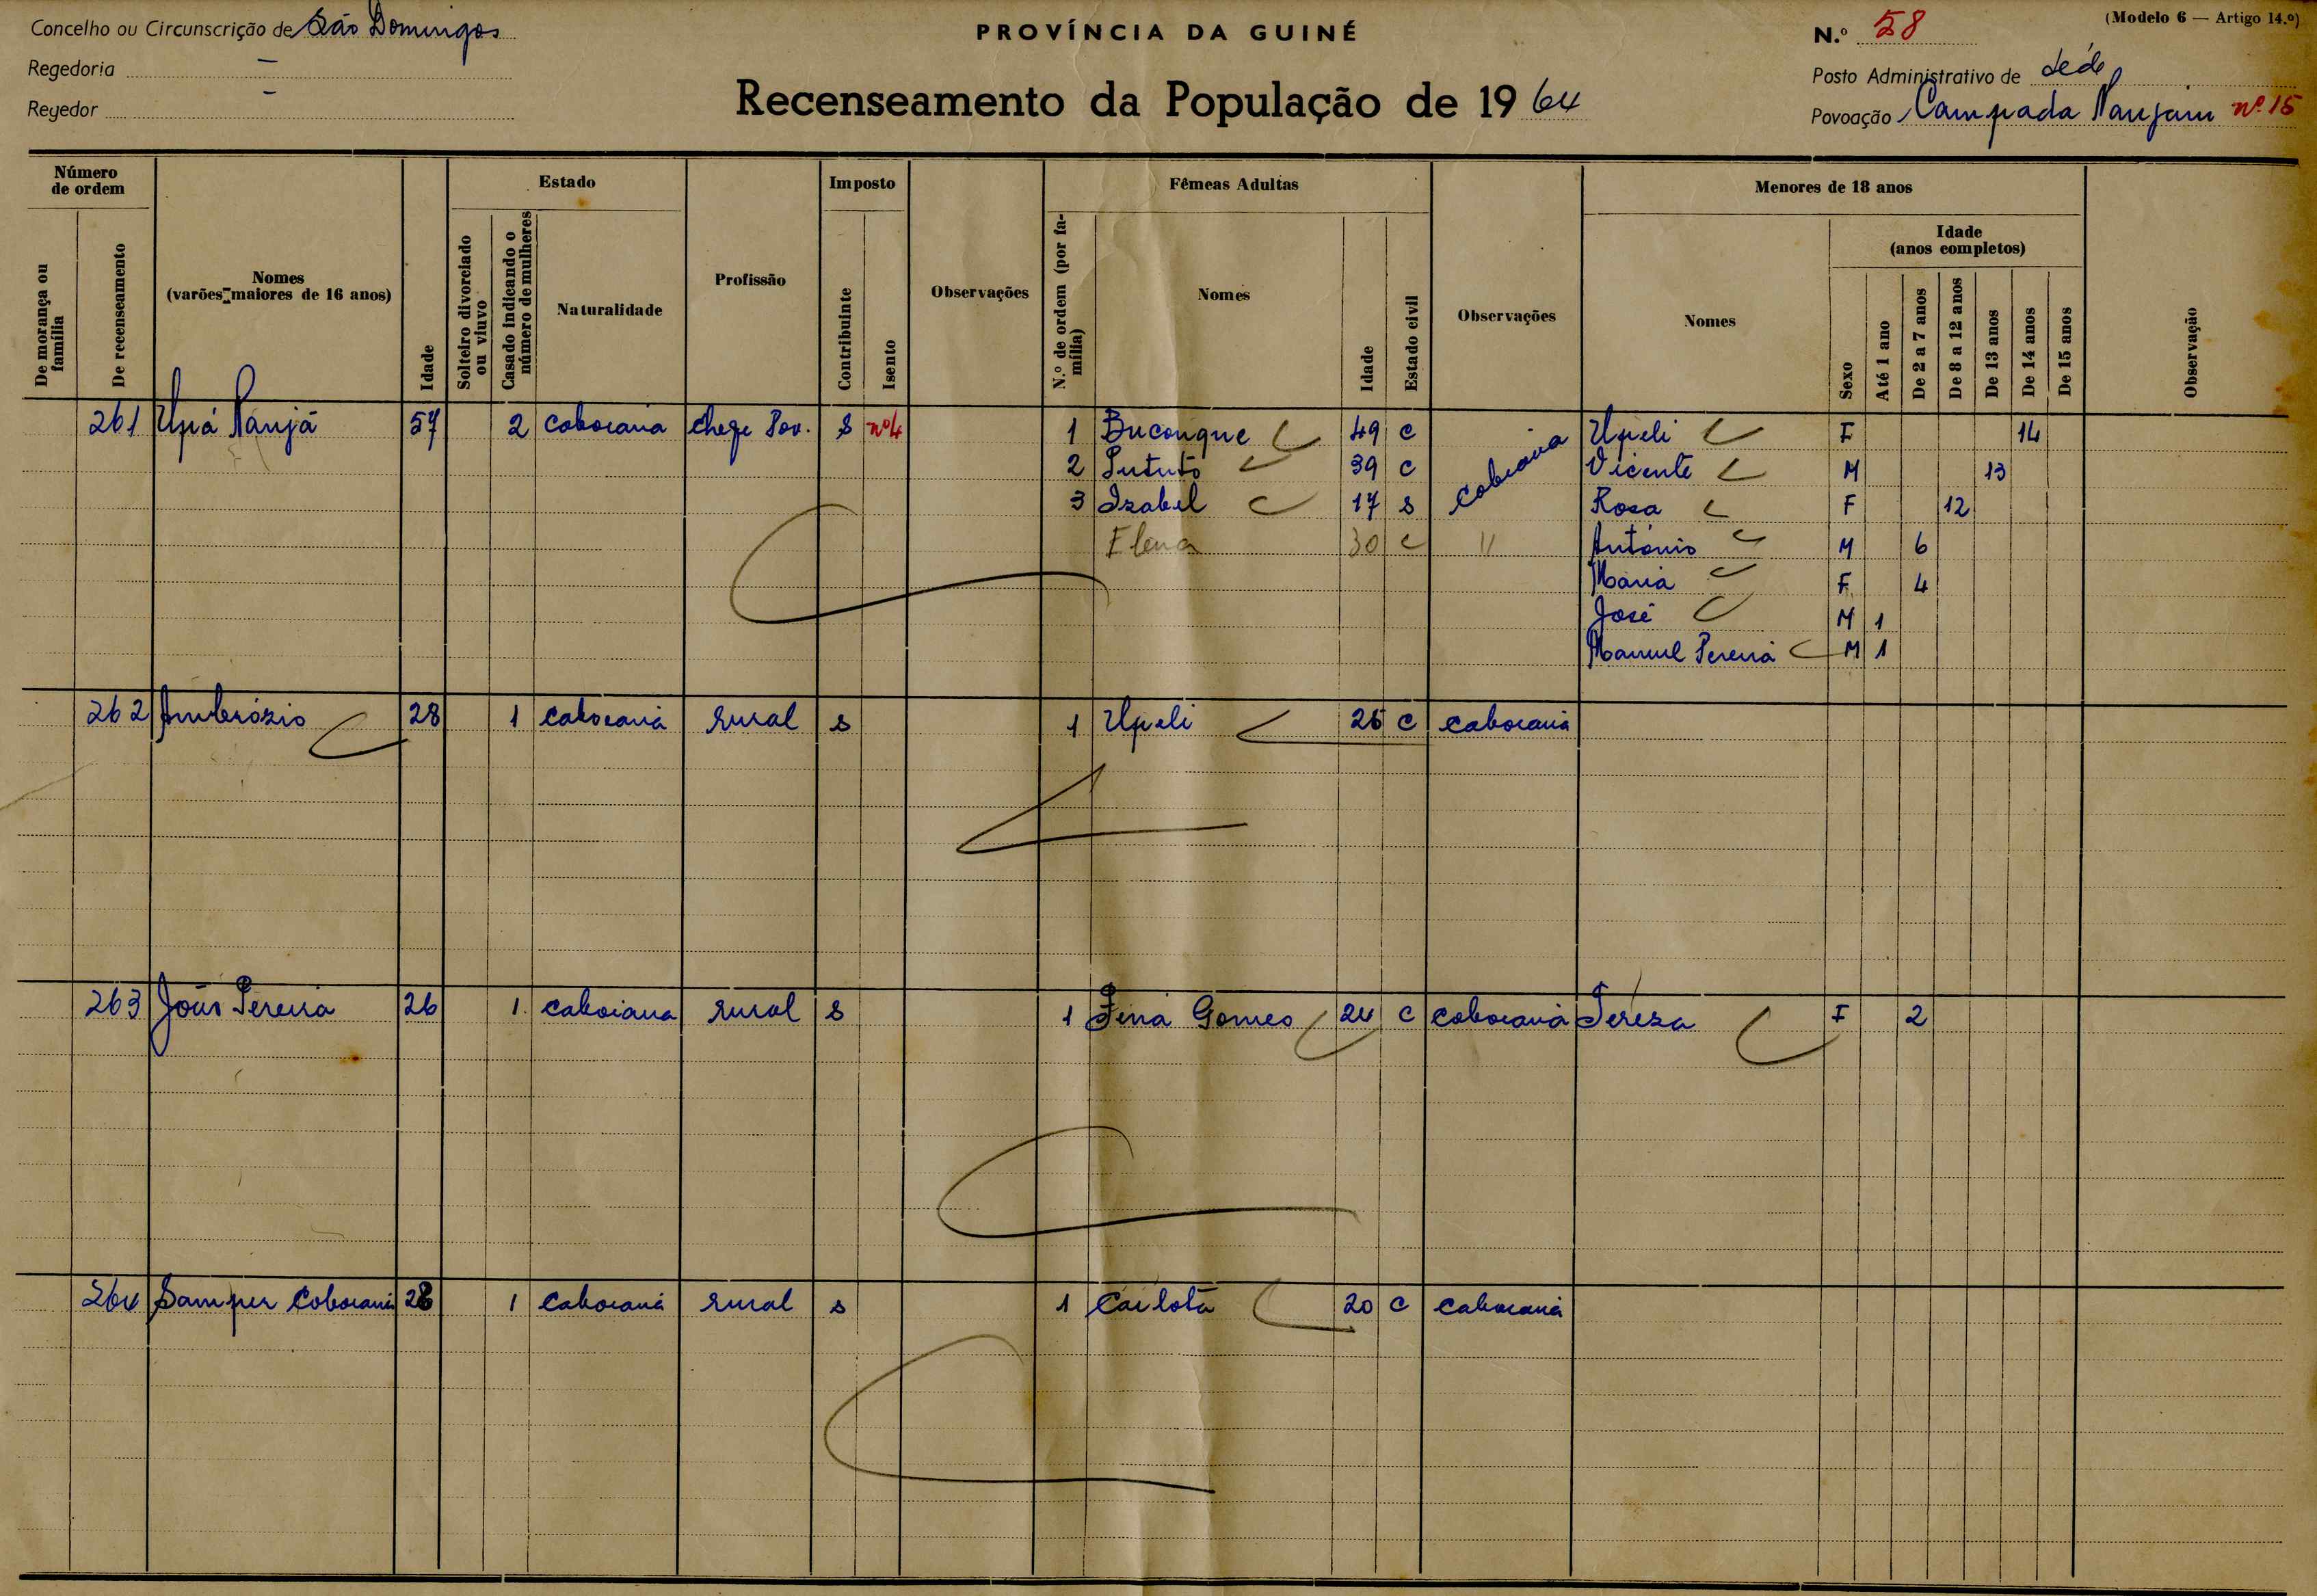 Concelho ou Circunscrição de São Domingos
Regedoria —
Regedor —
PROVÍNCIA DA GUINÉ
Recenseamento da População de 1964
(Modelo 6 — Artigo 14.º)
N.º 58
Posto Administrativo de séde
Povoação Campada Naujain nº 15
Número de ordem
De morança ou família
De recenseamento
Nomes (varões maiores de 16 anos)
Idade
Estado
Solteiro divorciado ou viuvo
Casado indicando o número de mulheres
Naturalidade
Profissão
Imposto
Contribuinte
Isento
Observações
Fêmeas Adultas
N.º de ordem (por família)
Nomes
Idade
Estado civil
Observações
Menores de 18 anos
Nomes
Sexo
Idade (anos completos)
Até 1 ano
De 2 a 7 anos
De 8 a 12 anos
De 13 anos
De 14 anos
De 15 anos
Observação
261 Upá Naujá 57 2 caboiana chefe Pov. s nº4 1 Buconque 49 c caboiana Upeli F 14
2 Pututo 39 c Vicente M 13
3 Izabel 17 s Rosa F 12
Elena 30 c " António M 6
Maria F 4
José M 1
Manuel Pereira M 1
262 Ambrózio 28 1 caboiana rural s 1 Upeli 25 c caboiana
263 João Pereira 26 1 caboiana rural s 1 Fina Gomes 24 c caboiana Tereza F 2
264 Samper Caboiana 28 1 caboiana rural s 1 Carlota 20 c caboiana